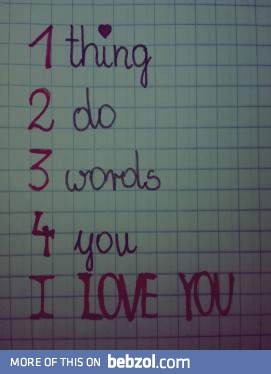 1 thing
2 do
3 words
4 you
I LOVE YOU
MORE OF THIS ON bebzol.com